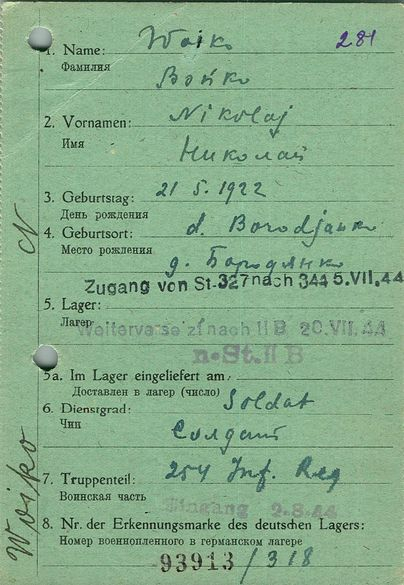 281
1. Name: Woiko
Фамилия Войко
2. Vornamen: Nikolaj
Имя Николай
3. Geburtstag: 21 5. 1922
День рождения
4. Geburtsort: d. Borodjanko
Место рождения д. Бородянко
Zugang von St-327 nach 344 5. VII. 44
5. Lager:
Лагер nach II B 20. VII. 44
n. St. II B
5a. Im Lager eingeliefert am
Доставлен в лагер (число)
6. Dienstgrad: Soldat
Чин Солдат
7. Truppenteil: 254 Inf. Reg
Воинская часть
Eingang 2.8.44
8. Nr. der Erkennungsmarke des deutschen Lagers:
Номер военнопленного в германском лагере
93913 / 318
N
Woiko